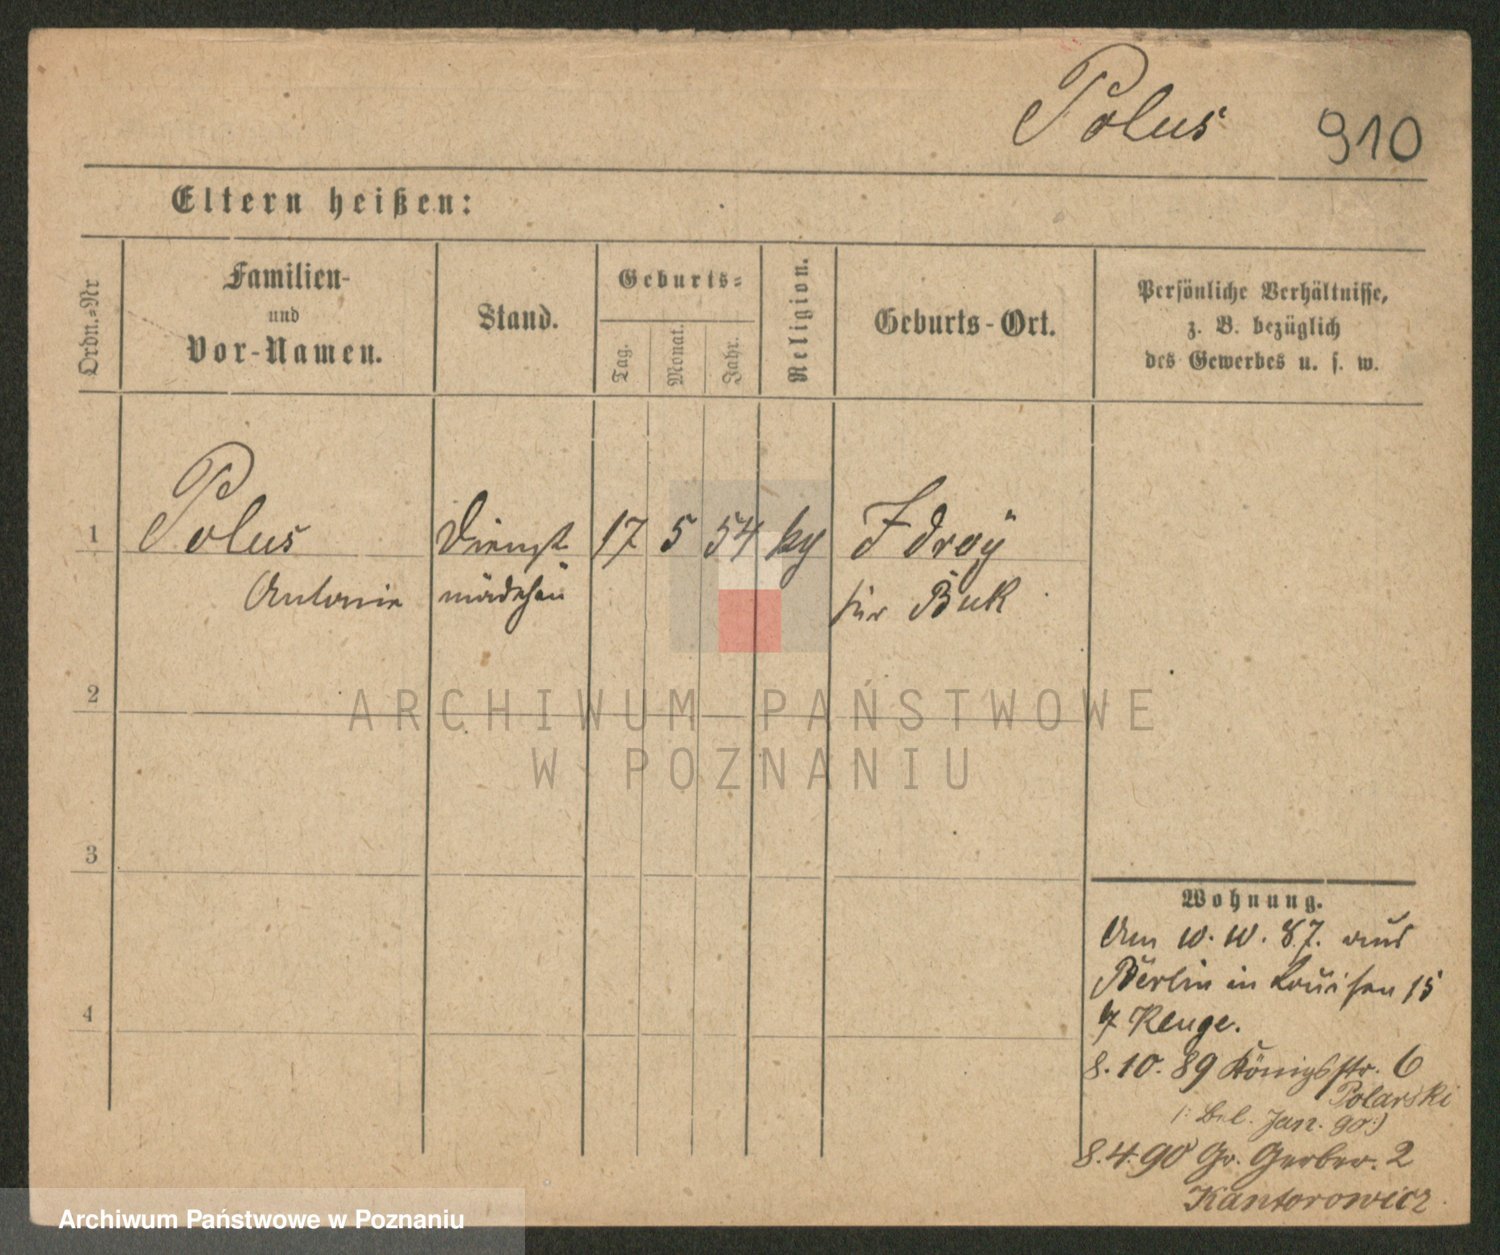 Polus 910
Eltern heißen:
Ordn.=Nr
Familien-
und
Vor-Namen.
Stand.
Geburts=
Tag.
Monat.
Jahr.
Religion.
Geburts-Ort.
Persönliche Verhältnisse,
z. B. bezüglich
des Gewerbes u. s. w.
1 Polus Dienst 17 5 54
Antonie mädchen Buk
2
3
4
ARCHIWUM PAŃSTWOWE
W POZNANIU
Wohnung.
Am 10. 10. 87. aus
Berlin in Louisen 15
8. 10. 89 Königsstr. 6
Polarski
Jan. 90:)
8. 4. 90 Gr. Gerber. 2
Kantorowicz.
Archiwum Państwowe w Poznaniu